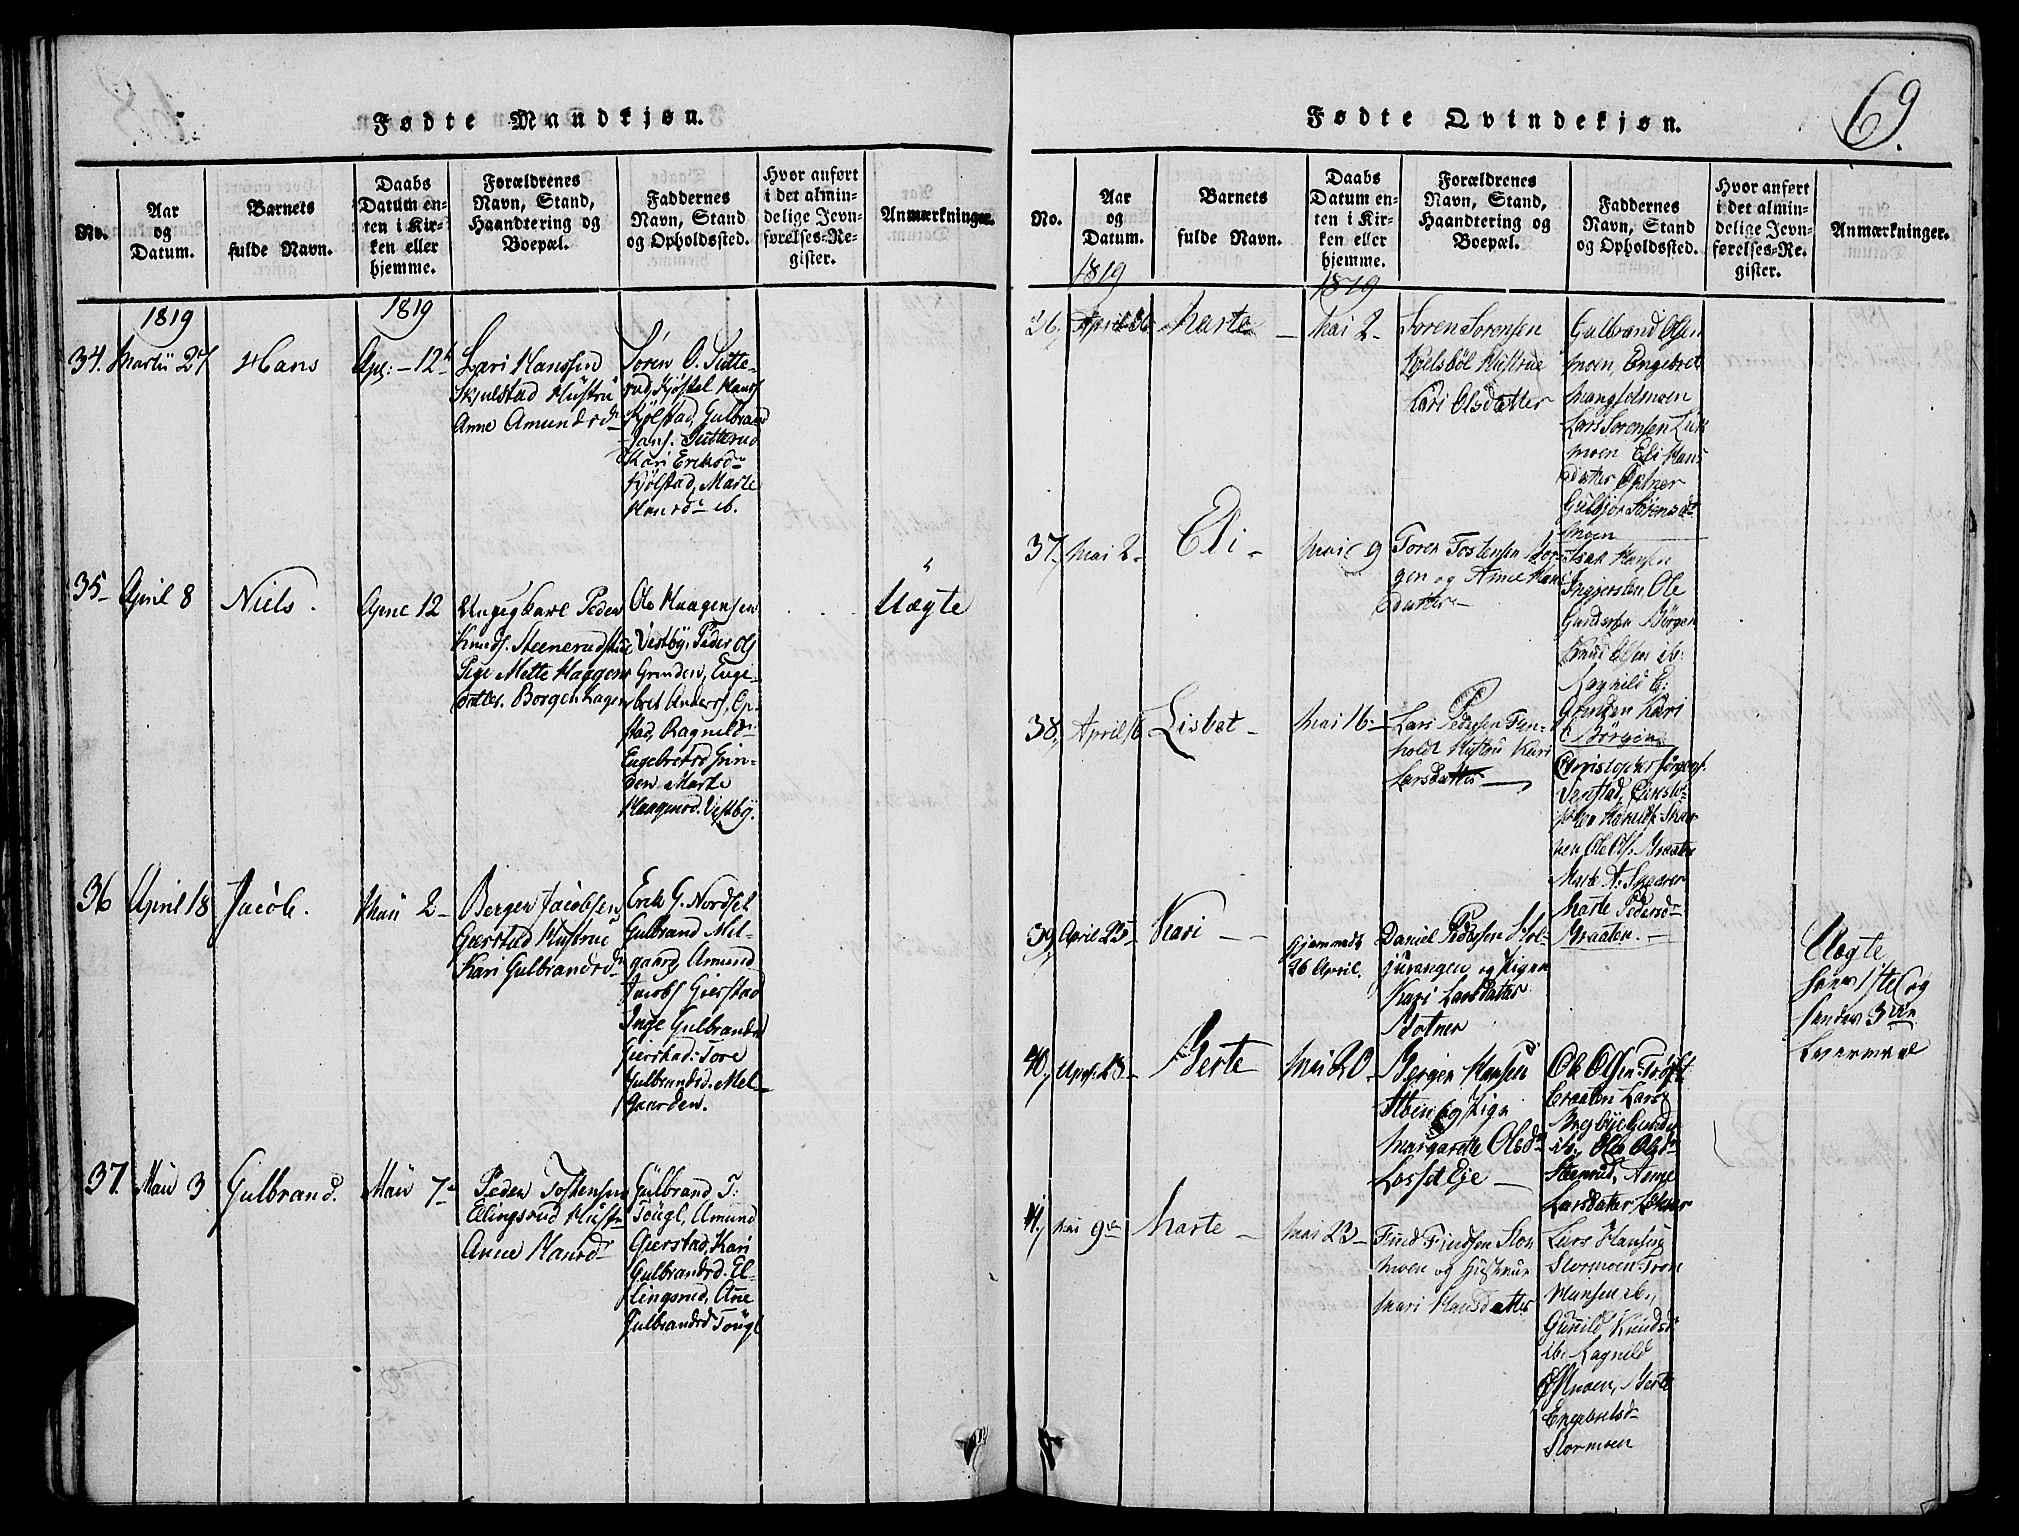 Fødte Mandkjøn.
No.
Aar
og
Datum.
Barnets
fulde Navn.
Daabs
Datum en-
ten i Kir-
ken eller
hjemme.
Forældrenes
Navn, Stand,
Haandtering og
Boepæl.
Faddernes
Navn, Stand
og Opholdssted.
Hvor anført
i det almin-
delige Jevn-
førelses-Re-
gister.
Anmærkninger.
1819
1819
34. Martii 27
Hans
Apr: - 12
Lars Hanssen
Skjulstad Hustru
Anne Amundsd
Søren O. Sutte-
rud, Kjøstel Hans
Kjølstad, Gulbrand
Hans. Sutterud
Kari Eriksd
Kjølstad, Marte
Hansd ib.
35
April 8
Niels.
Aprie 12
Ungegkarl Peder
Knuds. Steenerud
Pige Mette Haagens
datter. Borgenhagen
Ole Haagensen
Vestby, Peder Ols
Grinden, Enge-
bret Anders, Op-
stad, Ragnild
Engebretsd Grin-
den Marte
Haagensd. Vestby.
Uægte
36
April 18
Jacob.
Maii 2-
Bergen Jacobsen
Gierstad Hustrue
Kari Gulbrandsd
Erik G. Nordset
Gulbrand Mel-
gaard, Amund
Jacobs Gierstad
Inge Gulbrandsd
Gierstad. Tore
Gulbrandsd. Mel-
gaarden.
37.
Maii 3
Gulbrand.
Maii 7
Peder Tostensen
Elingsrud Hust
Anne Hansd
Gulbrand T:
Tougl, Amund
Gierstad, Kari
Gulbrandsd. El-
lingsrud, Ane
Gulbrandsd Tougl
Fødte Qvindekjøn.
69.
No.
Aar
og
Datum.
1819
Barnets
fulde Navn.
Daabs
Datum en-
ten i Kir-
ken eller
hjemme.
1819
Forældrenes
Navn, Stand,
Haandtering og
Boepæl.
Faddernes
Navn, Stand
og Opholdssted.
Hvor anført
i det almin-
delige Jevn-
førelses-Re-
gister.
Anmærkninger.
36,
April
Marte -
Mai 2-
Soren Sorensen
Hustrue
Kari Olsdatter
Gulbrand Olsen
moen, Engebret
Mangselmoen
Lars Sorensen
moen Eli Hans
datter Opner
Gulbjor Sorensdat
moen
37.
Mai 2-
Eli -
Mai 9
Soren Tostensen Bor-
gen og Anne Hans
datter -
Isak Hansen
Ingjersten Ole
Gundersen Børgen
ib.
Ragnild E:
Grinden Kari
Børgen
38,
April 16
Lisbet -
Mai 16.
Lars Pedersen
holdt Hustru Kari
Larsdatter
Christopher Jørgens.
Ole Ols. Braaten
Marte A. Skaaren
Marte Pedersd
Braaten. -
39,
April 25
Kari - -
Hjemmedt
26 April.
Daniel Pedersen
og Pigen
Kari Larsdatter
Botner
Uægte
hans 1ste og
hendes 3die
Leiermaal
40,
Berte
Mai 20
Bergen Hansen
Pige
Margarete Olsd
Losset Eje -
Ole Olsen Trøft
Braaten Lars
ib. Ole Olsd
Steenrud, Anne
Larsdatter
41,
Mai 9
Marte -
Mai 23
Find Findsen Stor
moen og Hustrue
Mari Hansdatter
Lars Hansen
Stormoen Tron
Hansen ib.,
Gunild Knudsd
ib. Ragnild
Berte
Engebretsd
Stormoen